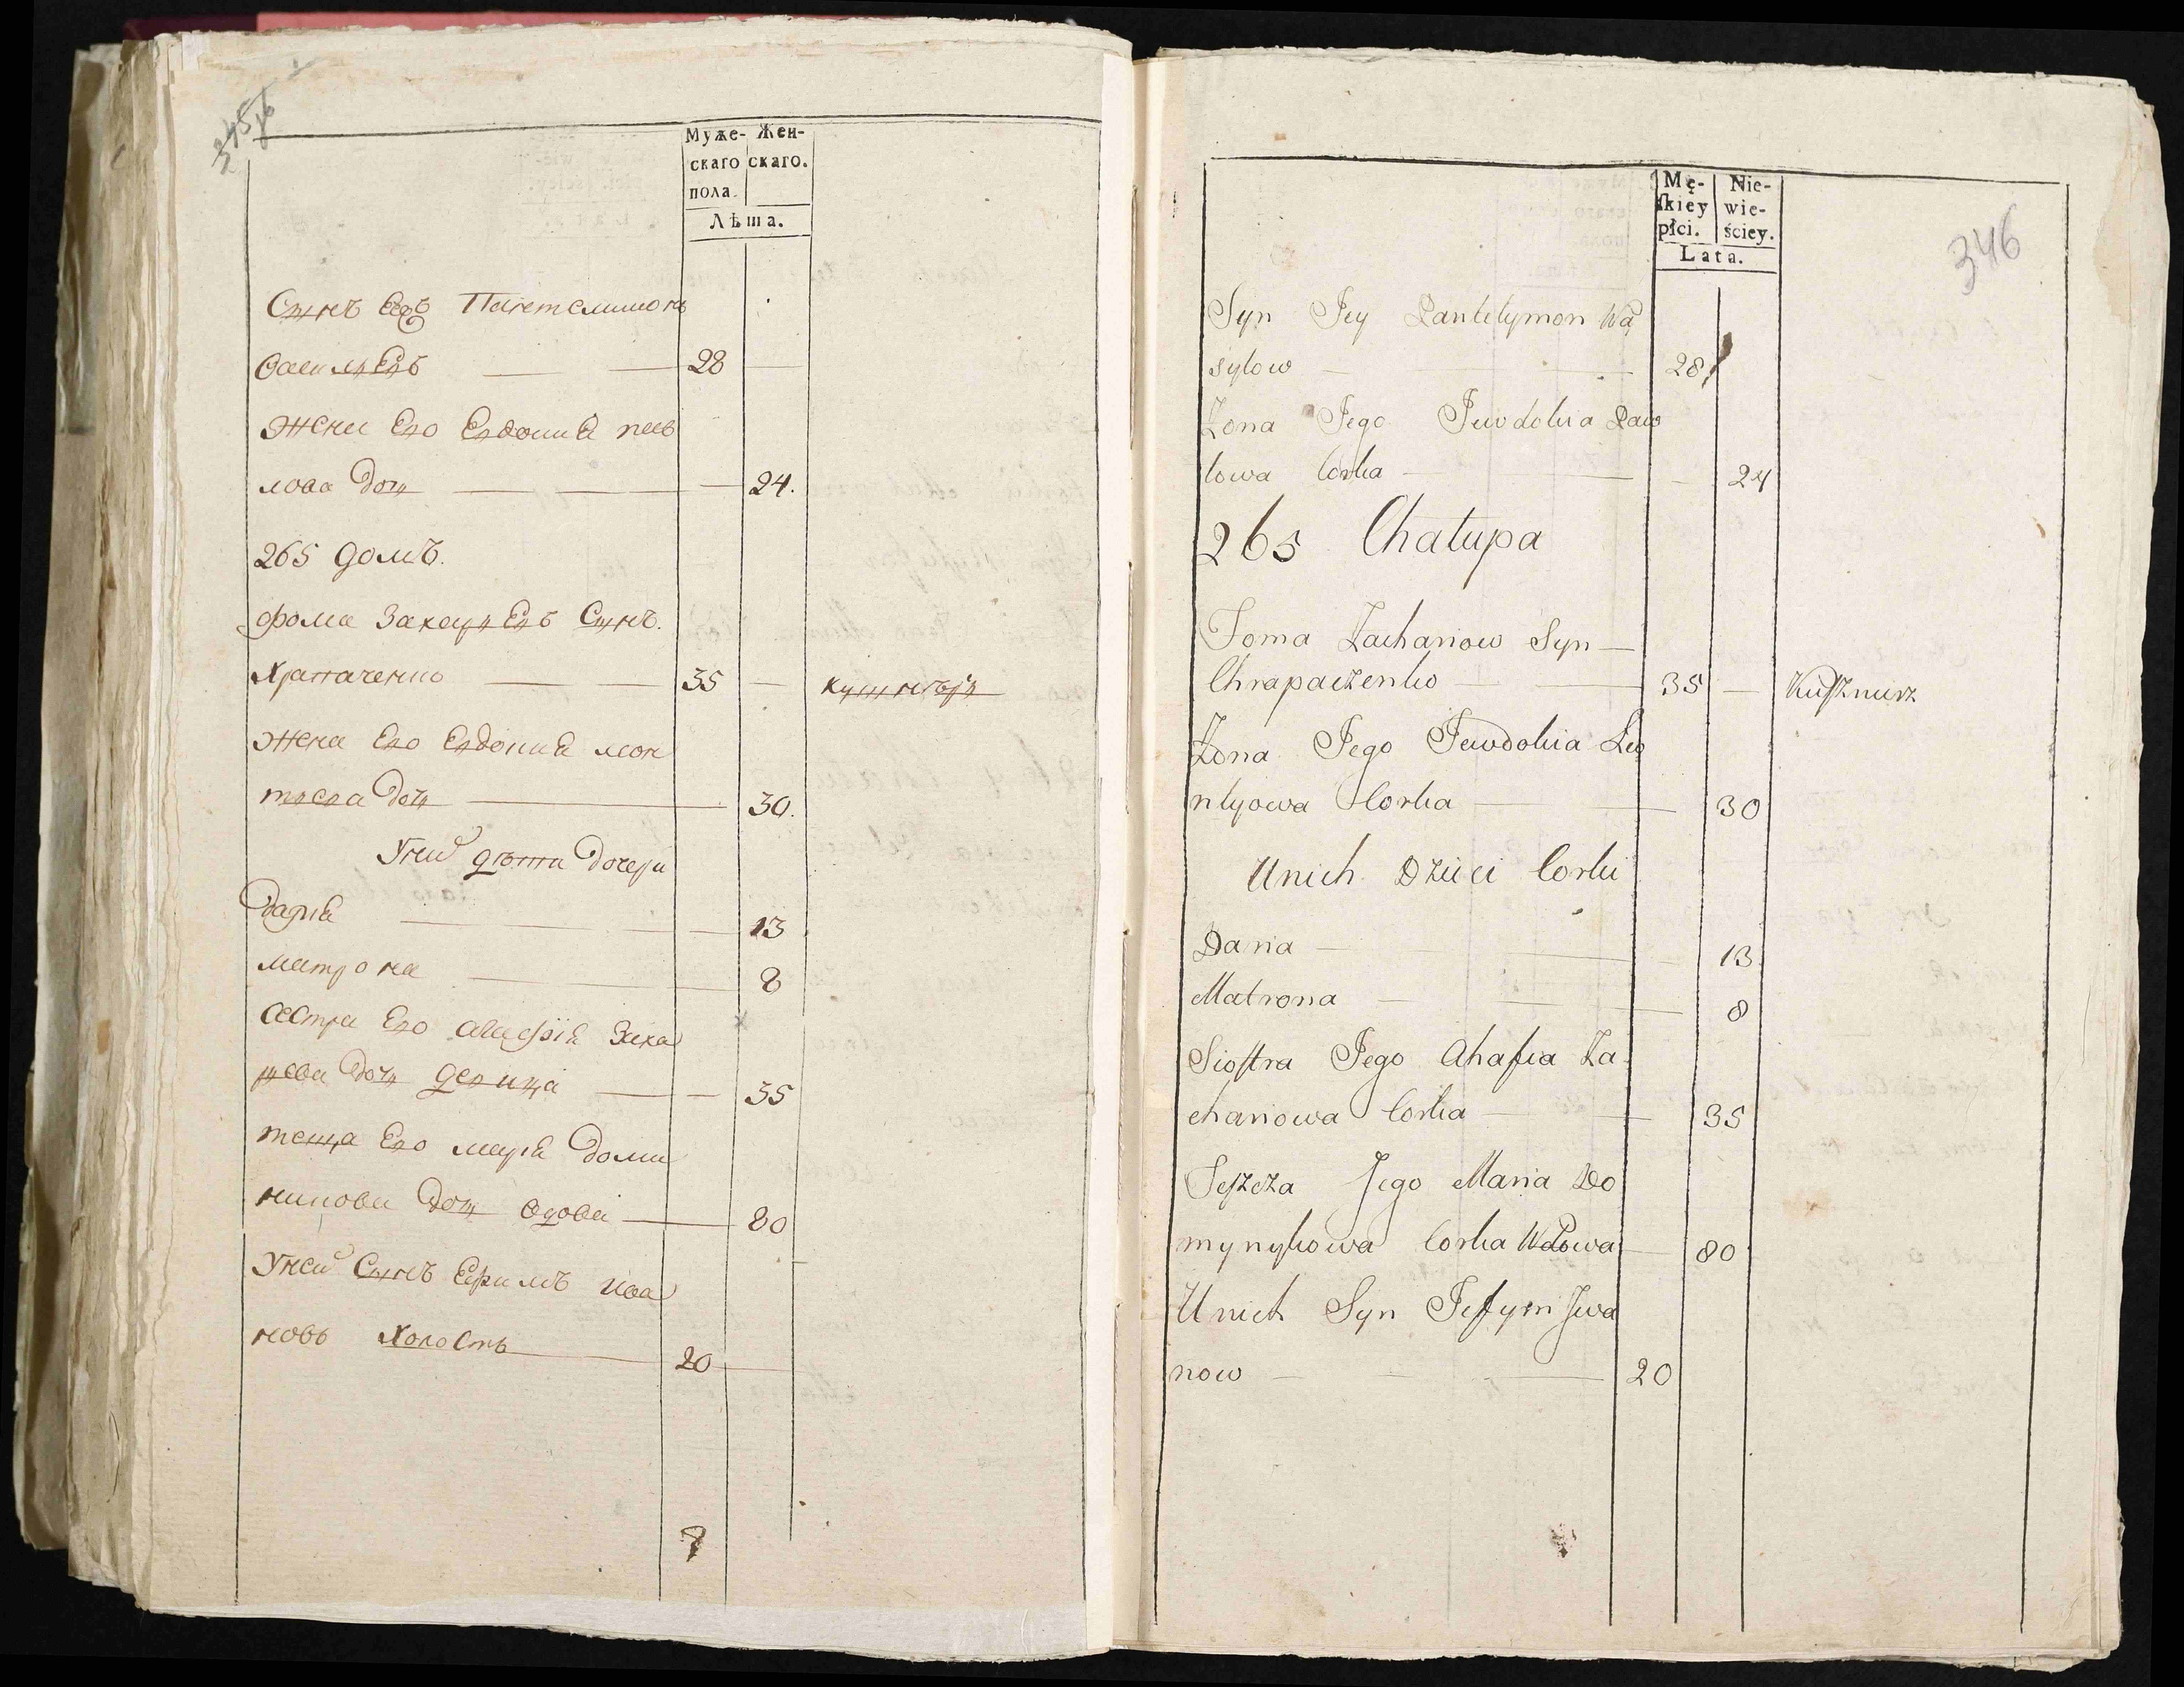 345 об
Муже- Жен-
скаго скаго.
пола.
Лѣта.
Сынъ Ея Пантелимонъ
Василіевъ 28
Жена Его Евдокиа пав
лова дочь 24.
265 домъ.
Фома Захаріевъ Сынъ.
Храпаченко 35 кушнѣръ
Жена Его Евдокиа леон
тиева дочь 30.
У них дѣти дочери
Дариа 13
Матрона 8
Сестра Его Агафіа Заха
риева дочь девица 35
теща Его Мариа Доми
никова дочь вдова 80
У неи Сынъ Ефимъ ива
новъ Холостъ 20
346
Mę- Nie-
ſkiey wie-
płci. ściey.
Lata.
Syn Jey Pantelymon Wa
sylow 28
Żona Jego Jewdokia Paw
lowa Corka 24
265 Chałupa
Foma Zachariow Syn
Chrapaczenko 35 Kuſznierz
Żona Jego Jewdokia Leo
ntyowa Corka 30
U nich Dzieci Corki
Daria 13
Matrona 8
Sioſtra Jego Ahafia Za
chariowa Corka 35
Teſzcza Jego Maria Do
mynykowa Corka Wdowa 80
U nich Syn Jefym Jwa
now 20